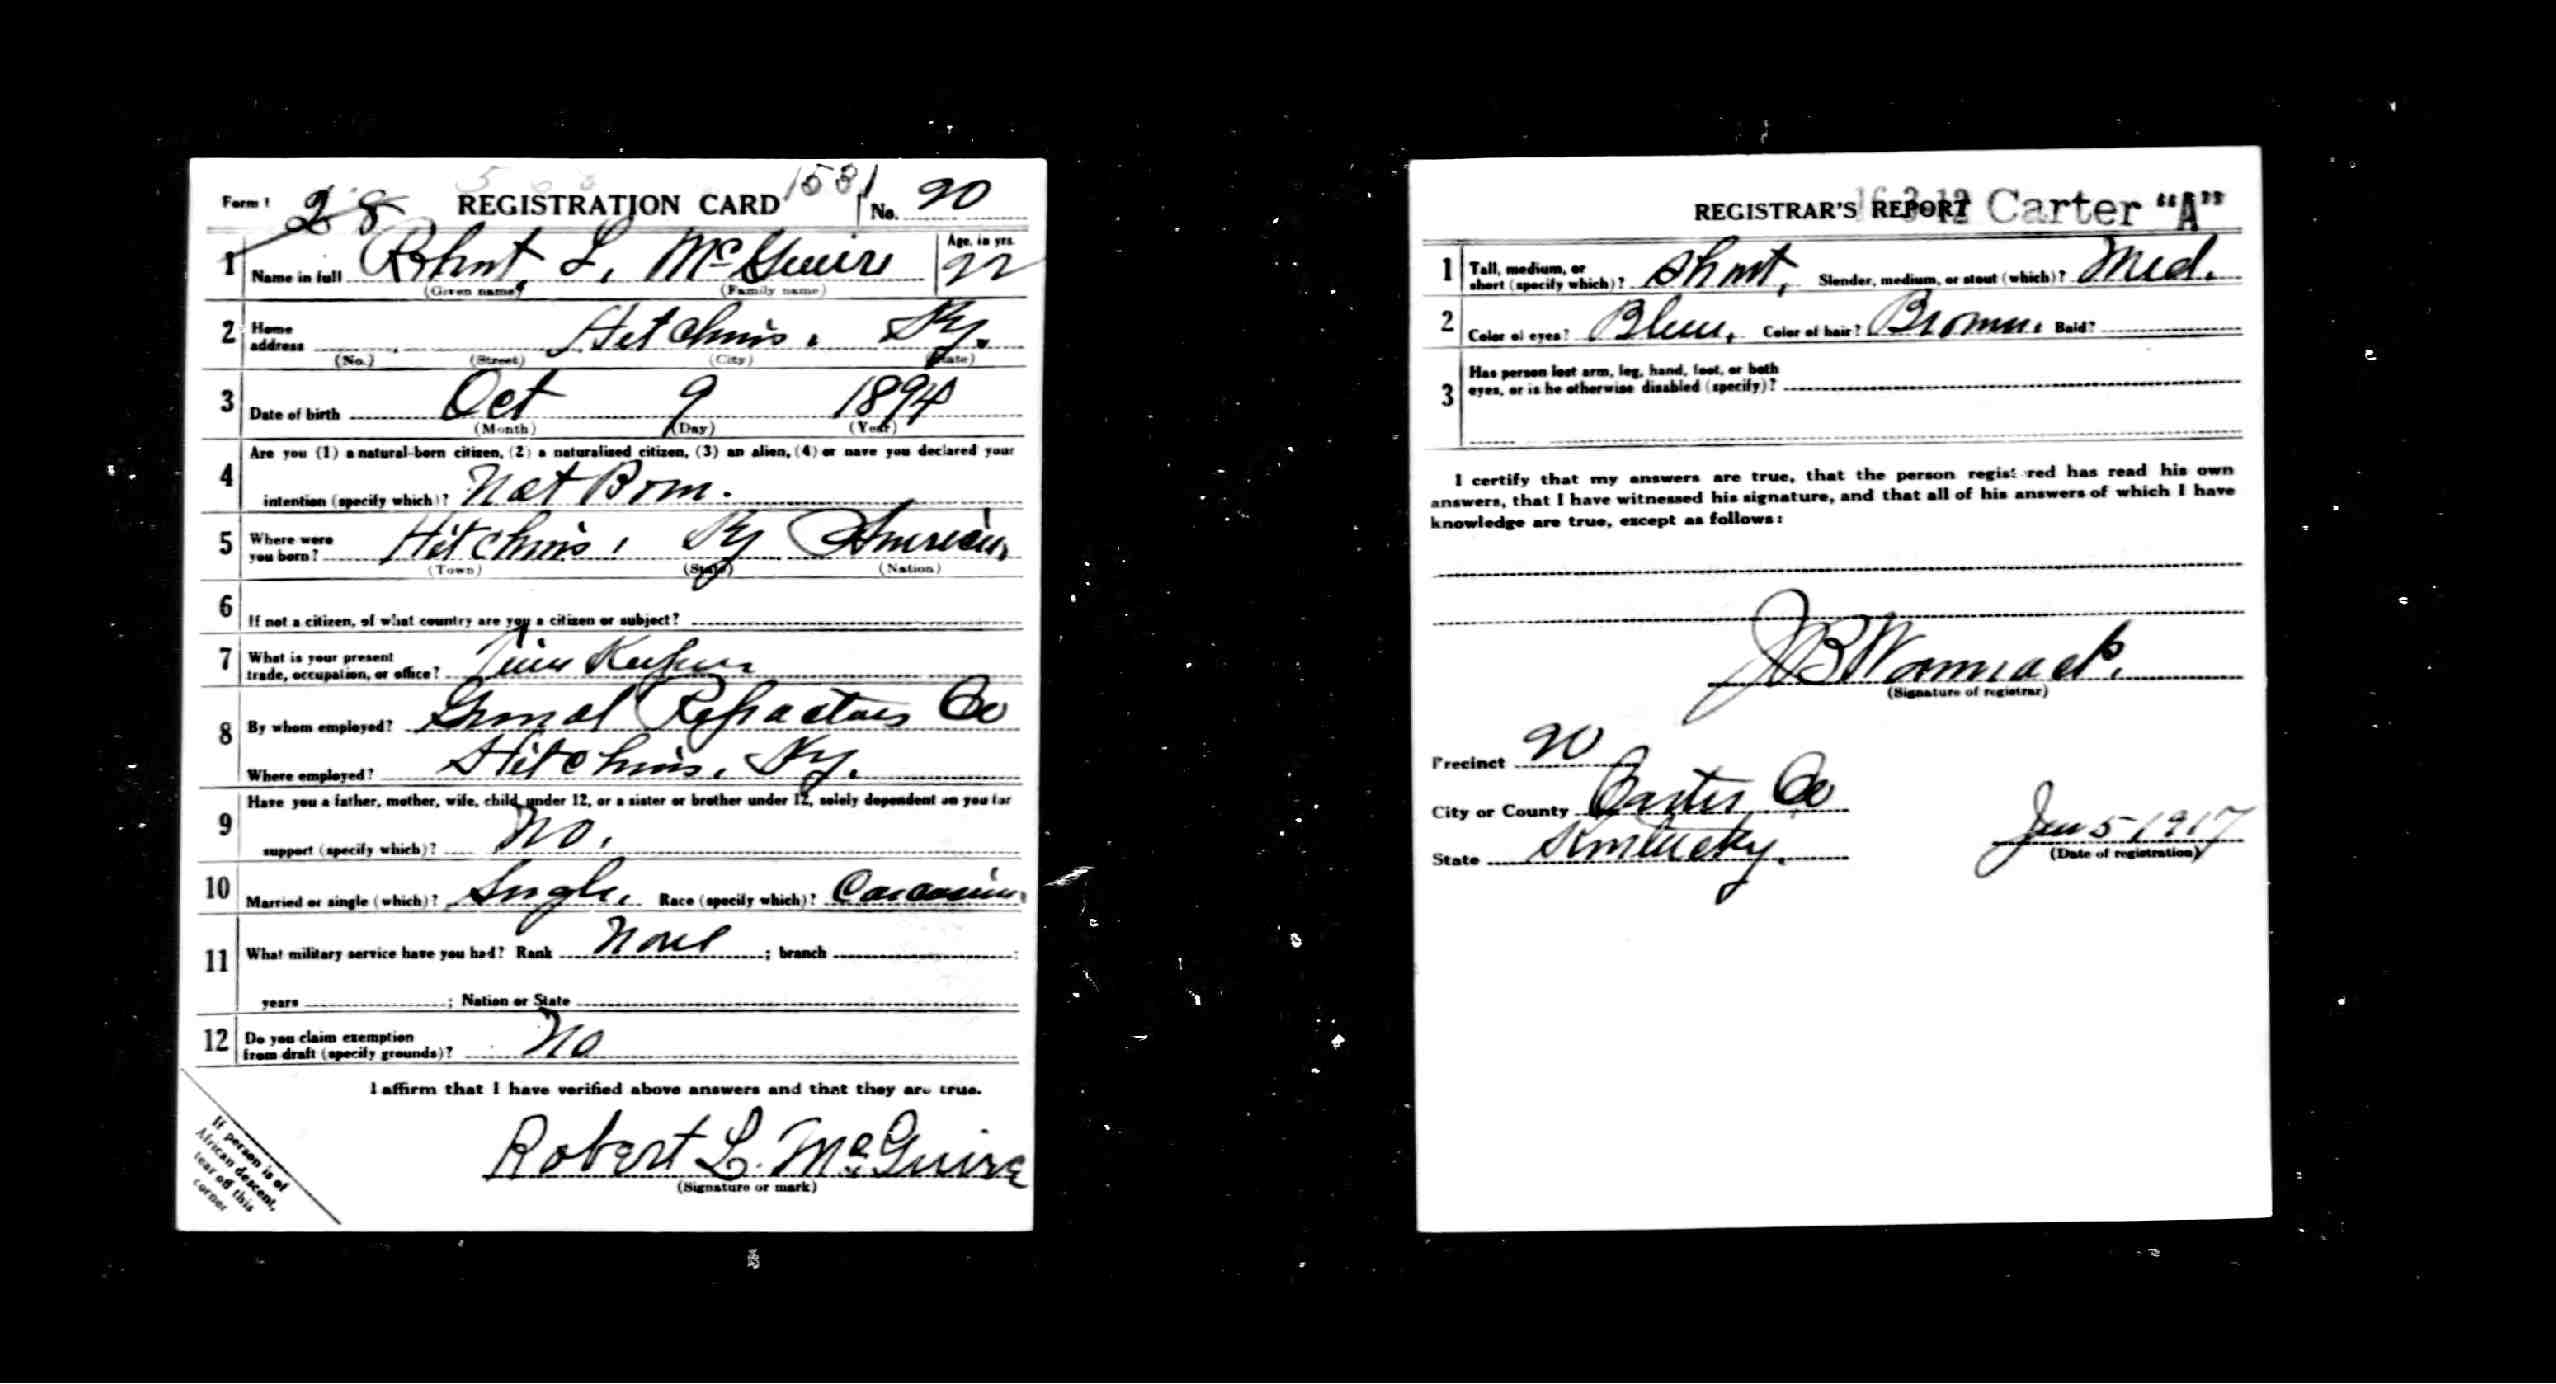 Form 1 28 REGISTRATION CARD 1531 No. 20
1 Name in full Robert L. McGuire Age, in yrs. 22
(Given name) (Family name)
2 Home address Hitchins, Ky.
(No.) (Street) (City) (State)
3 Date of birth Oct 9 1894
(Month) (Day) (Year)
4 Are you (1) a natural-born citizen, (2) a naturalized citizen, (3) an alien, (4) or have you declared your
intention (specify which)? Nat Born.
5 Where were you born? Hitchins, Ky American
(Town) (State) (Nation)
6 If not a citizen, of what country are you a citizen or subject?
7 What is your present
trade, occupation, or office? Time Keeper
8 By whom employed? General Refractories Co
Where employed? Hitchins, Ky.
9 Have you a father, mother, wife, child under 12, or a sister or brother under 12, solely dependent on you for
support (specify which)? No.
10 Married or single (which)? Single. Race (specify which)? Caucasian
11 What military service have you had? Rank None ; branch ;
years ; Nation or State
12 Do you claim exemption
from draft (specify grounds)? No
I affirm that I have verified above answers and that they are true.
Robert L. McGuire
(Signature or mark)
If person is of
African descent,
tear off this
corner
REGISTRAR'S REPORT 16-3-12 Carter "A"
1 Tall, medium, or
short (specify which)? Short, Slender, medium, or stout (which)? Med.
2 Color of eyes? Blue, Color of hair? Brown. Bald?
3 Has person lost arm, leg, hand, foot, or both
eyes, or is he otherwise disabled (specify)?
I certify that my answers are true, that the person registered has read his own
answers, that I have witnessed his signature, and that all of his answers of which I have
knowledge are true, except as follows:
J B Wommack.
(Signature of registrar)
Precinct 20
City or County Carter Co
State Kentucky. Jun 5 1917
(Date of registration)